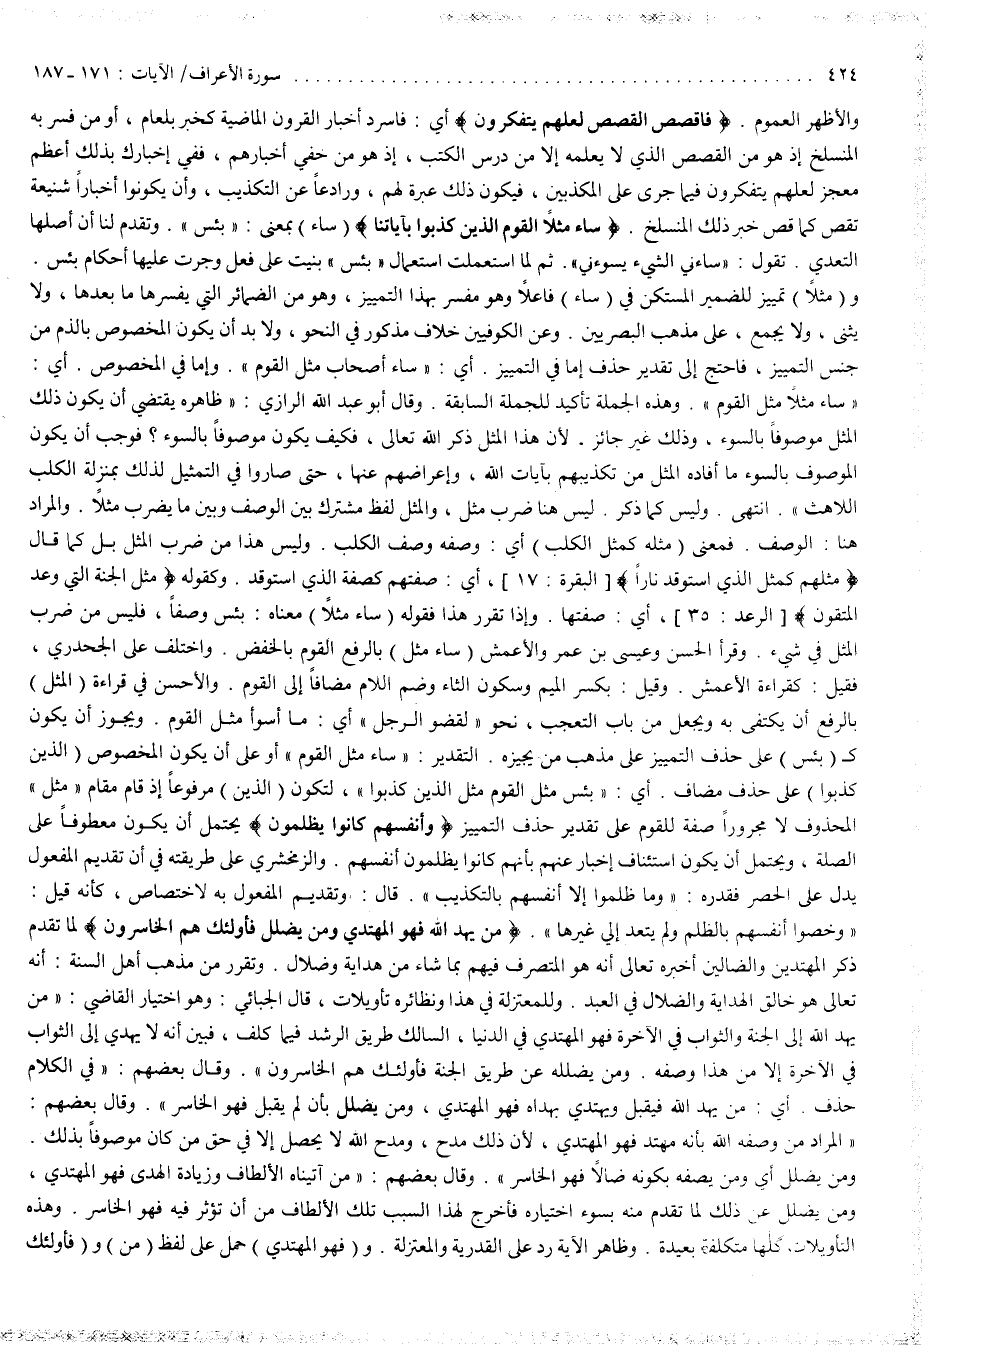 ٤٢٤ ........................................ سورة الأعراف/ الآيات : ١٧١ - ١٨٧
والأظهر العموم . ﴿ فاقصص القصص لعلهم يتفكرون ﴾ أي : فاسرد أخبار القرون الماضية كخبر بلعام ، أو من فسر به
المنسلخ إذ هو من القصص الذي لا يعلمه إلا من درس الكتب ، إذ هو من خفي أخبارهم ، ففي إخبارك بذلك أعظم
معجز لعلهم يتفكرون فيما جرى على المكذبين ، فيكون ذلك عبرة لهم ، ورادعاً عن التكذيب ، وأن يكونوا أخباراً شنيعة
تقص كما قص خبر ذلك المنسلخ . ﴿ ساء مثلاً القوم الذين كذبوا بآياتنا ﴾ ( ساء ) بمعنى : « بئس » . وتقدم لنا أن أصلها
التعدي . تقول : «ساءني الشيء يسوءني». ثم لما استعملت استعمال « بئس » بنيت على فعل وجرت عليها أحكام بئس .
و ( مثلًا ) تمييز للضمير المستكن في ( ساء ) فاعلًا وهو مفسر بهذا التمييز ، وهو من الضمائر التي يفسرها ما بعدها ، ولا
يثنى ، ولا يجمع ، على مذهب البصريين . وعن الكوفيين خلاف مذكور في النحو ، ولا بد أن يكون المخصوص بالذم من
جنس التمييز ، فاحتج إلى تقدير حذف إما في التمييز . أي : « ساء أصحاب مثل القوم » . وإما في المخصوص . أي :
« ساء مثلًا مثل القوم » . وهذه الجملة تأكيد للجملة السابقة . وقال أبو عبد الله الرازي : « ظاهره يقتضي أن يكون ذلك
المثل موصوفاً بالسوء ، وذلك غير جائز . لأن هذا المثل ذكر الله تعالى ، فكيف يكون موصوفاً بالسوء ؟ فوجب أن يكون
الموصوف بالسوء ما أفاده المثل من تكذيبهم بآيات الله ، وإعراضهم عنها ، حتى صاروا في التمثيل لذلك بمنزلة الكلب
اللاهث » . انتهى . وليس كما ذكر . ليس هنا ضرب مثل ، والمثل لفظ مشترك بين الوصف وبين ما يضرب مثلًا . والمراد
هنا : الوصف . فمعنى ( مثله كمثل الكلب ) أي : وصفه وصف الكلب . وليس هذا من ضرب المثل بل كما قال
﴿ مثلهم كمثل الذي استوقد ناراً ﴾ [ البقرة : ١٧ ] ، أي : صفتهم كصفة الذي استوقد . وكقوله ﴿ مثل الجنة التي وعد
المتقون ﴾ [ الرعد : ٣٥ ] ، أي : صفتها . وإذا تقرر هذا فقوله ( ساء مثلًا ) معناه : بئس وصفاً ، فليس من ضرب
المثل في شيء . وقرأ الحسن وعيسى بن عمر والأعمش ( ساء مثل ) بالرفع القوم بالخفض . واختلف على الجحدري ،
فقيل : كقراءة الأعمش . وقيل : بكسر الميم وسكون الثاء وضم اللام مضافاً إلى القوم . والأحسن في قراءة ( المثل )
بالرفع أن يكتفى به ويجعل من باب التعجب ، نحو « لقضو الرجل » أي : ما أسوأ مثل القوم . ويجوز أن يكون
كـ ( بئس ) على حذف التمييز على مذهب من يجيزه . التقدير : « ساء مثل القوم » أو على أن يكون المخصوص ( الذين
كذبوا ) على حذف مضاف . أي : « بئس مثل القوم مثل الذين كذبوا » ، لتكون ( الذين ) مرفوعاً إذ قام مقام « مثل »
المحذوف لا مجروراً صفة للقوم على تقدير حذف التمييز ﴿ وأنفسهم كانوا يظلمون ﴾ يحتمل أن يكون معطوفاً على
الصلة ، ويحتمل أن يكون استئناف إخبار عنهم بأنهم كانوا يظلمون أنفسهم . والزمخشري على طريقته في أن تقديم المفعول
يدل على الحصر فقدره : « وما ظلموا إلا أنفسهم بالتكذيب » . قال : وتقديم المفعول به لاختصاص ، كأنه قيل :
« وخصوا أنفسهم بالظلم ولم يتعد إلي غيرها » . ﴿ من يهد الله فهو المهتدي ومن يضلل فأولئك هم الخاسرون ﴾ لما تقدم
ذكر المهتدين والضالين أخبره تعالى أنه هو المتصرف فيهم بما شاء من هداية وضلال . وتقرر من مذهب أهل السنة : أنه
تعالى هو خالق الهداية والضلال في العبد . وللمعتزلة في هذا ونظائره تأويلات ، قال الجبائي : وهو اختيار القاضي : « من
يهد الله إلى الجنة والثواب في الآخرة فهو المهتدي في الدنيا ، السالك طريق الرشد فيما كلف ، فبين أنه لا يهدي إلى الثواب
في الآخرة إلا من هذا وصفه . ومن يضلله عن طريق الجنة فأولئك هم الخاسرون » . وقال بعضهم : « في الكلام
حذف . أي : من يهد الله فيقبل ويهتدي بهداه فهو المهتدي ، ومن يضلل بأن لم يقبل فهو الخاسر » . وقال بعضهم :
« المراد من وصفه الله بأنه مهتد فهو المهتدي ، لأن ذلك مدح ، ومدح الله لا يحصل إلا في حق من كان موصوفاً بذلك .
ومن يضلل أي ومن يصفه بكونه ضالًا فهو الخاسر » . وقال بعضهم : « من آتيناه الألطاف وزيادة الهدى فهو المهتدي ،
ومن يضلل عن ذلك لما تقدم منه بسوء اختياره فأخرج لهذا السبب تلك الألطاف من أن تؤثر فيه فهو الخاسر . وهذه
التأويلات كلها متكلفة بعيدة . وظاهر الآية رد على القدرية والمعتزلة . و ( فهو المهتدي ) حمل على لفظ ( من ) و ( فأولئك